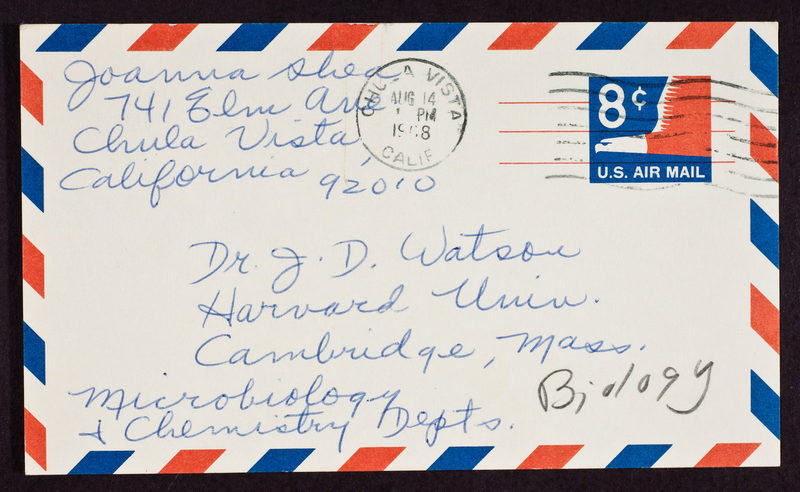 Joanna Shea
741 Elm Ave
Chula Vista,
California 92010
CHULA VISTA
AUG 14
PM
1968
CALIF
8¢
U.S. AIR MAIL
Dr. J. D. Watson
Harvard Univ.
Cambridge, Mass.
Microbiology
& Chemistry Depts.
Biology